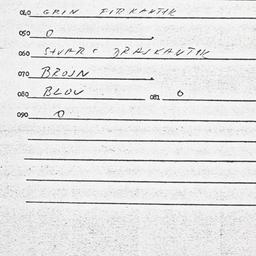 040 GRIN FIRKANTIK
050 0
060 SHVARC DRAJKANTIK
070 BROJN
080 BLOU 081 0
090 0